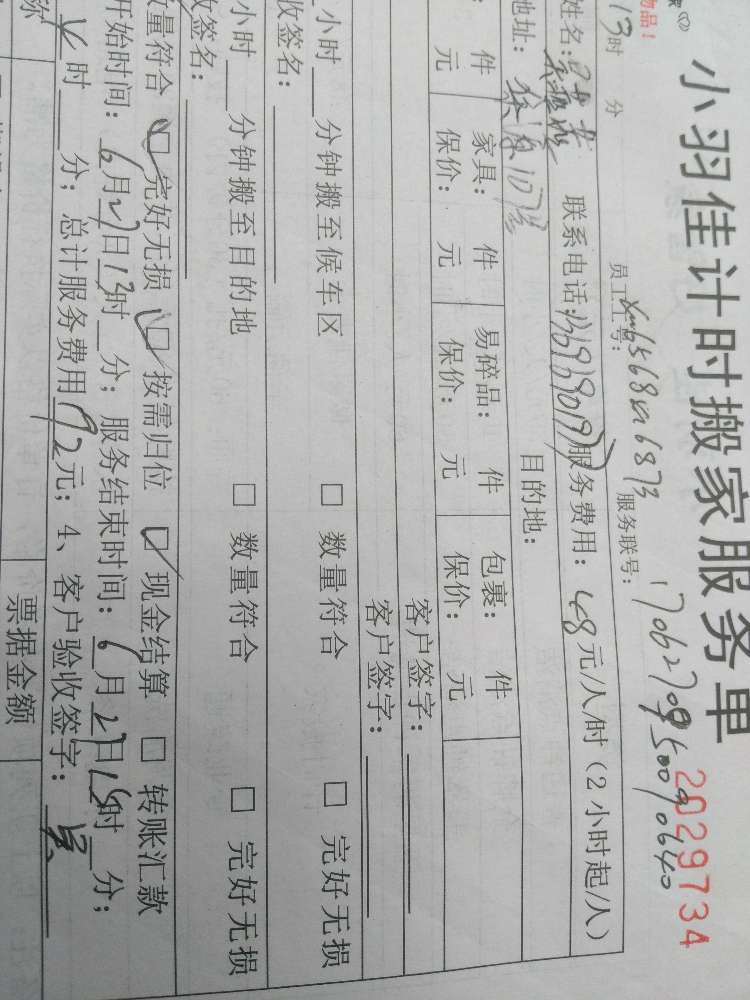 小羽佳计时搬家服务单
物品！
2029734
13时 分 员工工号： 服务联号：
姓名： 联系电话： 服务费用：48元/人/时（2小时起/人）
地址： 目的地：
件 家具： 件 易碎品： 件 包裹： 件
元 保价： 元 保价： 元 保价： 元
客户签字：
客户签字：
小时 分钟搬至候车区 □ 数量符合 □ 完好无损
收签名：
小时 分钟搬至目的地 □ 数量符合 □ 完好无损
收签名：
数量符合 □ 完好无损 □ 按需归位 □ 现金结算 □ 转账汇款
开始时间：6月27日13时 分；服务结束时间：6月27日15时 分；
4时 分；总计服务费用192元；4、客户验收签字：
称 票据金额